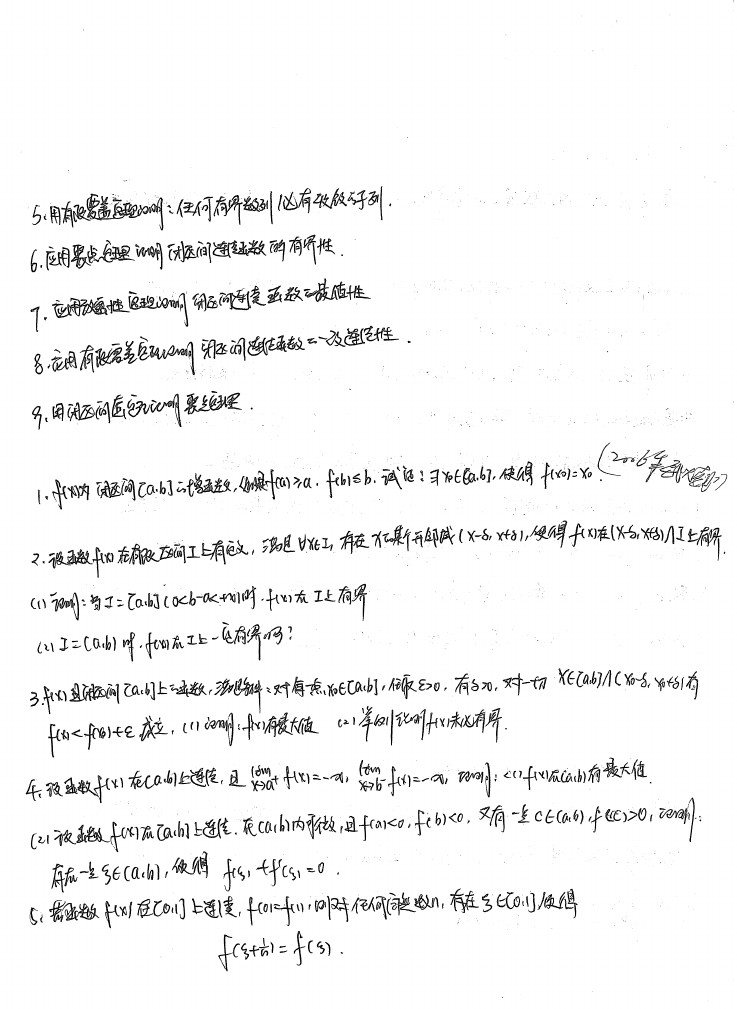 5. 用有限覆盖定理证明：任何有界数列必有收敛子列.
6. 应用聚点定理证明闭区间连续函数的有界性.
7. 应用致密性定理证明闭区间连续函数之最值性
8. 应用有限覆盖定理证明闭区间连续函数之一致连续性.
9. 用闭区间套定理证明聚点定理.
1. f(x)为闭区间[a,b]之增函数, 如果f(a)≥a. f(b)≤b. 试证：∃x0∈[a,b], 使得 f(x0)=x0. (2006年
2. 设函数f(x)在有限区间I上有定义, 满足∀x∈I, 存在x之某开邻域(x-δ, x+δ), 使得f(x)在(x-δ, x+δ)∩I上有界.
(1) 证明：当I=[a,b] (0<b-a<+∞)时. f(x)在I上有界
(2) I=(a,b)时. f(x)在I上一定有界吗?
3. f(x)是闭区间[a,b]上之函数, 满足条件：对每点x0∈[a,b], 任取ε>0, 有δ>0, 对一切 x∈[a,b]∩(x0-δ, x0+δ)有
f(x)<f(x0)+ε 成立, (1) 证明：f(x)有最大值 (2) 举例说明f(x)未必有界.
4. 设函数f(x)在(a,b)上连续, 且 lim x→a+ f(x)=-∞, lim x→b- f(x)=-∞, 证明：(1) f(x)在(a,b)有最大值.
(2) 设函数f(x)在[a,b]上连续. 在(a,b)内可微, 且f(a)<0, f(b)<0, 又有一点c∈(a,b), f(c)>0, 证明：
存在一点ξ∈(a,b), 使得 f(ξ)+f'(ξ)=0.
5. 若函数f(x)在[0,1]上连续, f(0)=f(1), 则对任何自然数n, 存在ξ∈[0,1]使得
f(ξ+1/n)=f(ξ).